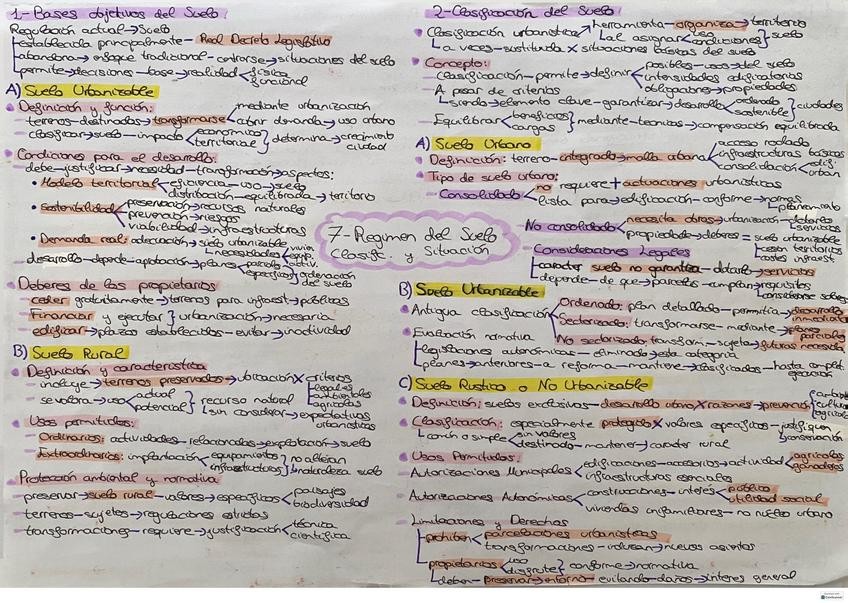 1.- Bases objetivos del Suelo
Regulación actual → Suelo
establecida principalmente - Real Decreto Legislativo
abandona → enfoque tradicional - centrarse → situaciones del suelo
permite → decisiones - base → realidad física
funcional
A) Suelo Urbanizable
Definición y función:
terrenos - destinados → transformarse mediante urbanización
abrir demanda → uso urbano
clasificar → suelo - impacto económico
territorial } determina → crecimiento ciudad
Condiciones para el desarrollo:
debe - justificar → necesidad - transformación → aspectos:
• Modelo territorial eficiencia - uso → suelo
distribución - equilibrada → territorio
• Sostenibilidad preservación → recursos naturales
prevención → riesgos
viabilidad → infraestructuras
• Demanda real: adecuación → suelo urbanizable
necesidades
desarrollo - depende - aprobación → planes parciales
específicos ordenación del suelo
Deberes de los propietarios
ceder gratuitamente → terrenos para infraest → públicas
Financiar y ejecutar } urbanización → necesaria
edificar → plazos establecidos - evitar → inactividad
B) Suelo Rural
Definición y característica
incluye → terrenos preservados → ubicación x criterios
legales
ambientales
agrícolas
se valora → uso actual
potencial } recurso natural
sin considerar → expectativas urbanísticas
Usos permitidos:
Ordinarios: actividades - relacionadas → explotación → suelo
Extraordinarios: implantación equipamientos
infraestructuras } no alteran
naturaleza suelo
Protección ambiental y normativa
preservar → suelo rural - valores → específicos paisajes
biodiversidad
terrenos → sujetos → regulaciones estrictas
transformaciones - requiere → justificación técnica
científica
7- Regimen del Suelo
Clasific. y Situación
2- Clasificación del Suelo
Clasificación urbanística herramienta - organiza → territorio
al asignar uso
condiciones } suelo
a veces - sustituida x situaciones básicas del suelo
Concepto:
clasificación - permite → definir posibles - usos del suelo
intensidades edificatorias
obligaciones → propiedades
A pesar de criterios
siendo → elemento clave - garantizar → desarrollo ordenado
sostenible } ciudades
Equilibrar beneficios
cargas } mediante → técnicas → compensación equilibrada
A) Suelo Urbano
Definición: terreno - integrado → malla urbana acceso rodado
infraestructuras básicas
consolidación edif. urban
Tipo de suelo urbano:
Consolidado no requiere + actuaciones urbanísticas
lista para → edificación - conforme → normas
planeamiento
No consolidado necesita obras → urbanización - deberes
servicios
propiedad → deberes = suelo urbanizable
cesan territorios
costes infraest.
Consideraciones Legales
caracter suelo no garantiza - dotarlo → servicios
depende - de que → parcelas - cumplan → requisitos
B) Suelo Urbanizable
Antigua clasificación Ordenado: plan detallado - permitía → desarrollo inmediato
Sectorizado: transformarse - mediante → planes parciales
No sectorizado: transform - sujeta → futuras necesida.
Evaluación normativa
legislaciones autonómicas - eliminado → esta categoría
planes → anteriores - a reforma - mantiene → clasificados - hasta completa ejecución
C) Suelo Rustico o No Urbanizable
Definición: suelos exclusivos - desarrollo urbano x razones → prevención
Clasificación: especialmente protegido x valores específicos - justifiquen conservación
común o simple sin valores
destinado - mantener → carácter rural
Usos Permitidos:
Autorizaciones Municipales edificaciones - accesorios → actividad agrícolas
ganaderos
infraestructuras esenciales
Autorizaciones Autonómicas construcciones - interés público
utilidad social
viviendas unifamiliares - no núcleo urbano
Limitaciones y Derechos
prohiben parcelaciones urbanísticas
transformaciones - induzcan → nuevos asientos
propietarios uso
disfrute } conforme → normativa
deben - preservar → entorno - evitando - daños → interes general